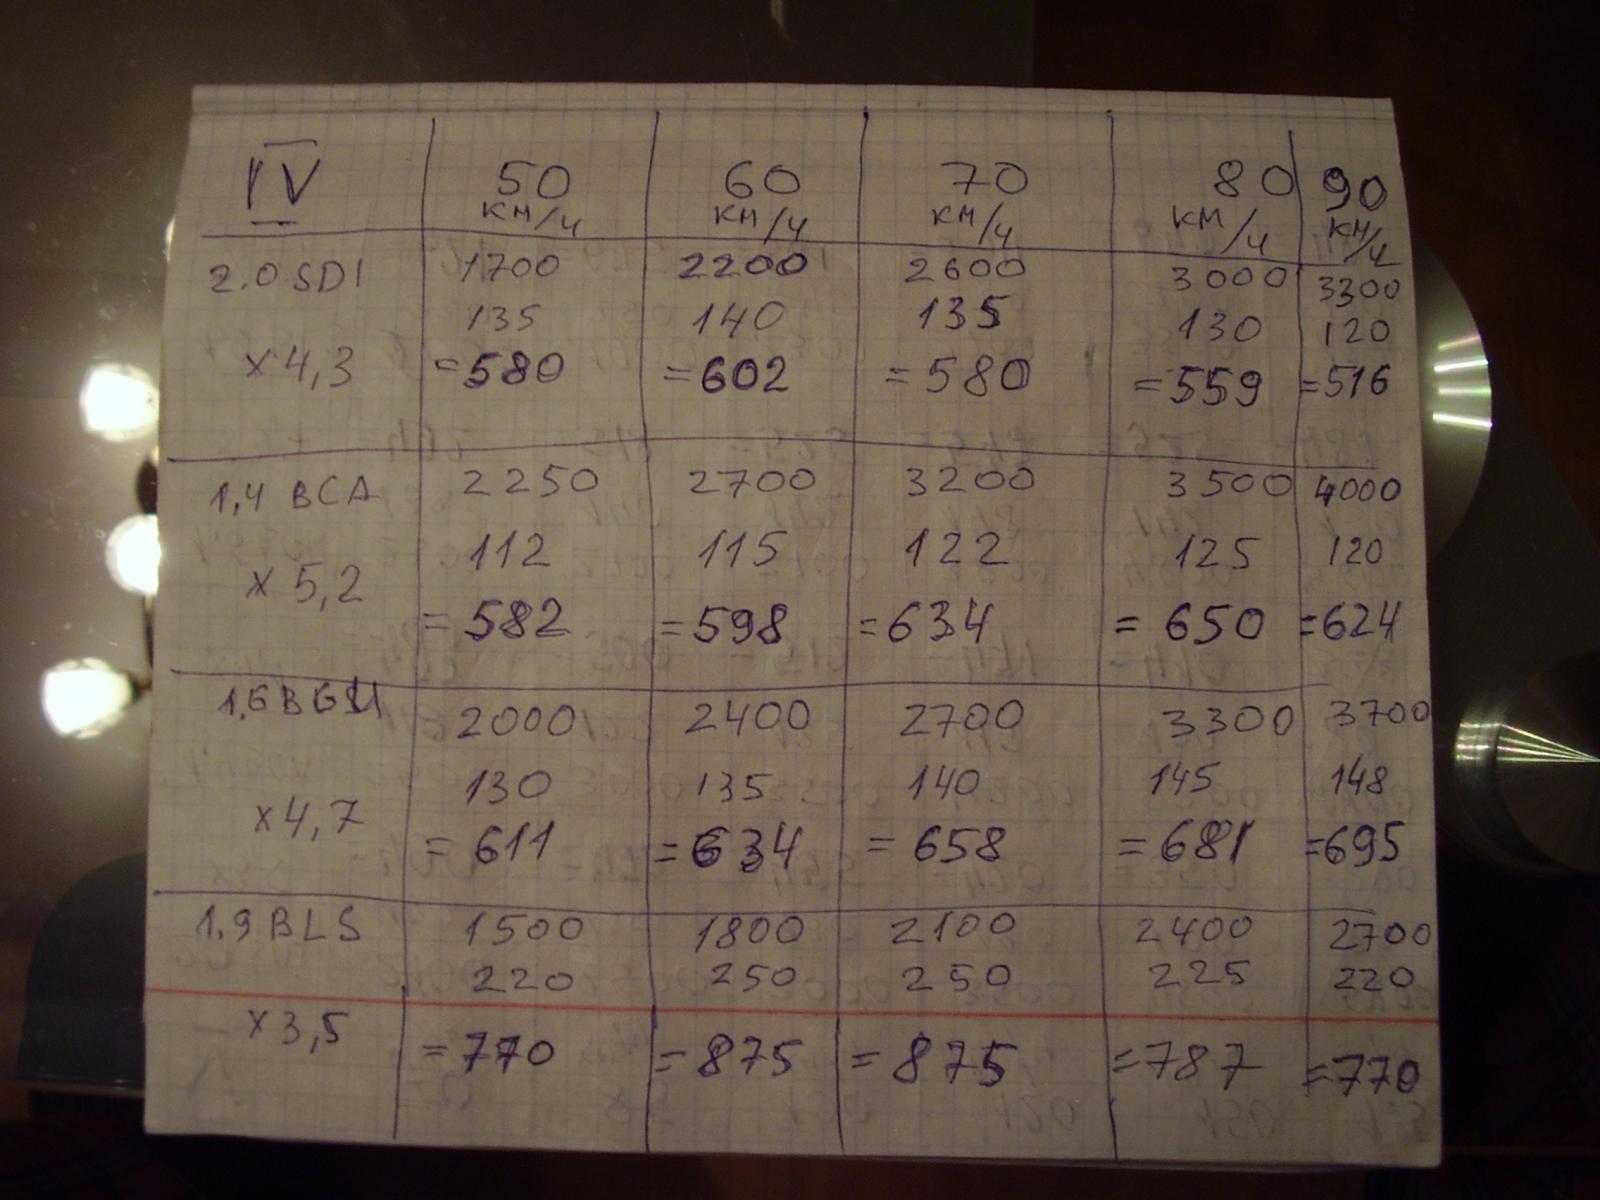 IV 50 60 70 80 90
км/ч км/ч км/ч км/ч км/ч
2.0 SDI 1700 2200 2600 3000 3300
135 140 135 130 120
x4,3 =580 =602 =580 =559 =516
1,4 BCA 2250 2700 3200 3500 4000
112 115 122 125 120
x5,2 =582 =598 =634 =650 =624
1,6 BGU 2000 2400 2700 3300 3700
130 135 140 145 148
x4,7 =611 =634 =658 =681 =695
1.9 BLS 1500 1800 2100 2400 2700
220 250 250 225 220
x3,5 =770 =875 =875 =787 =770